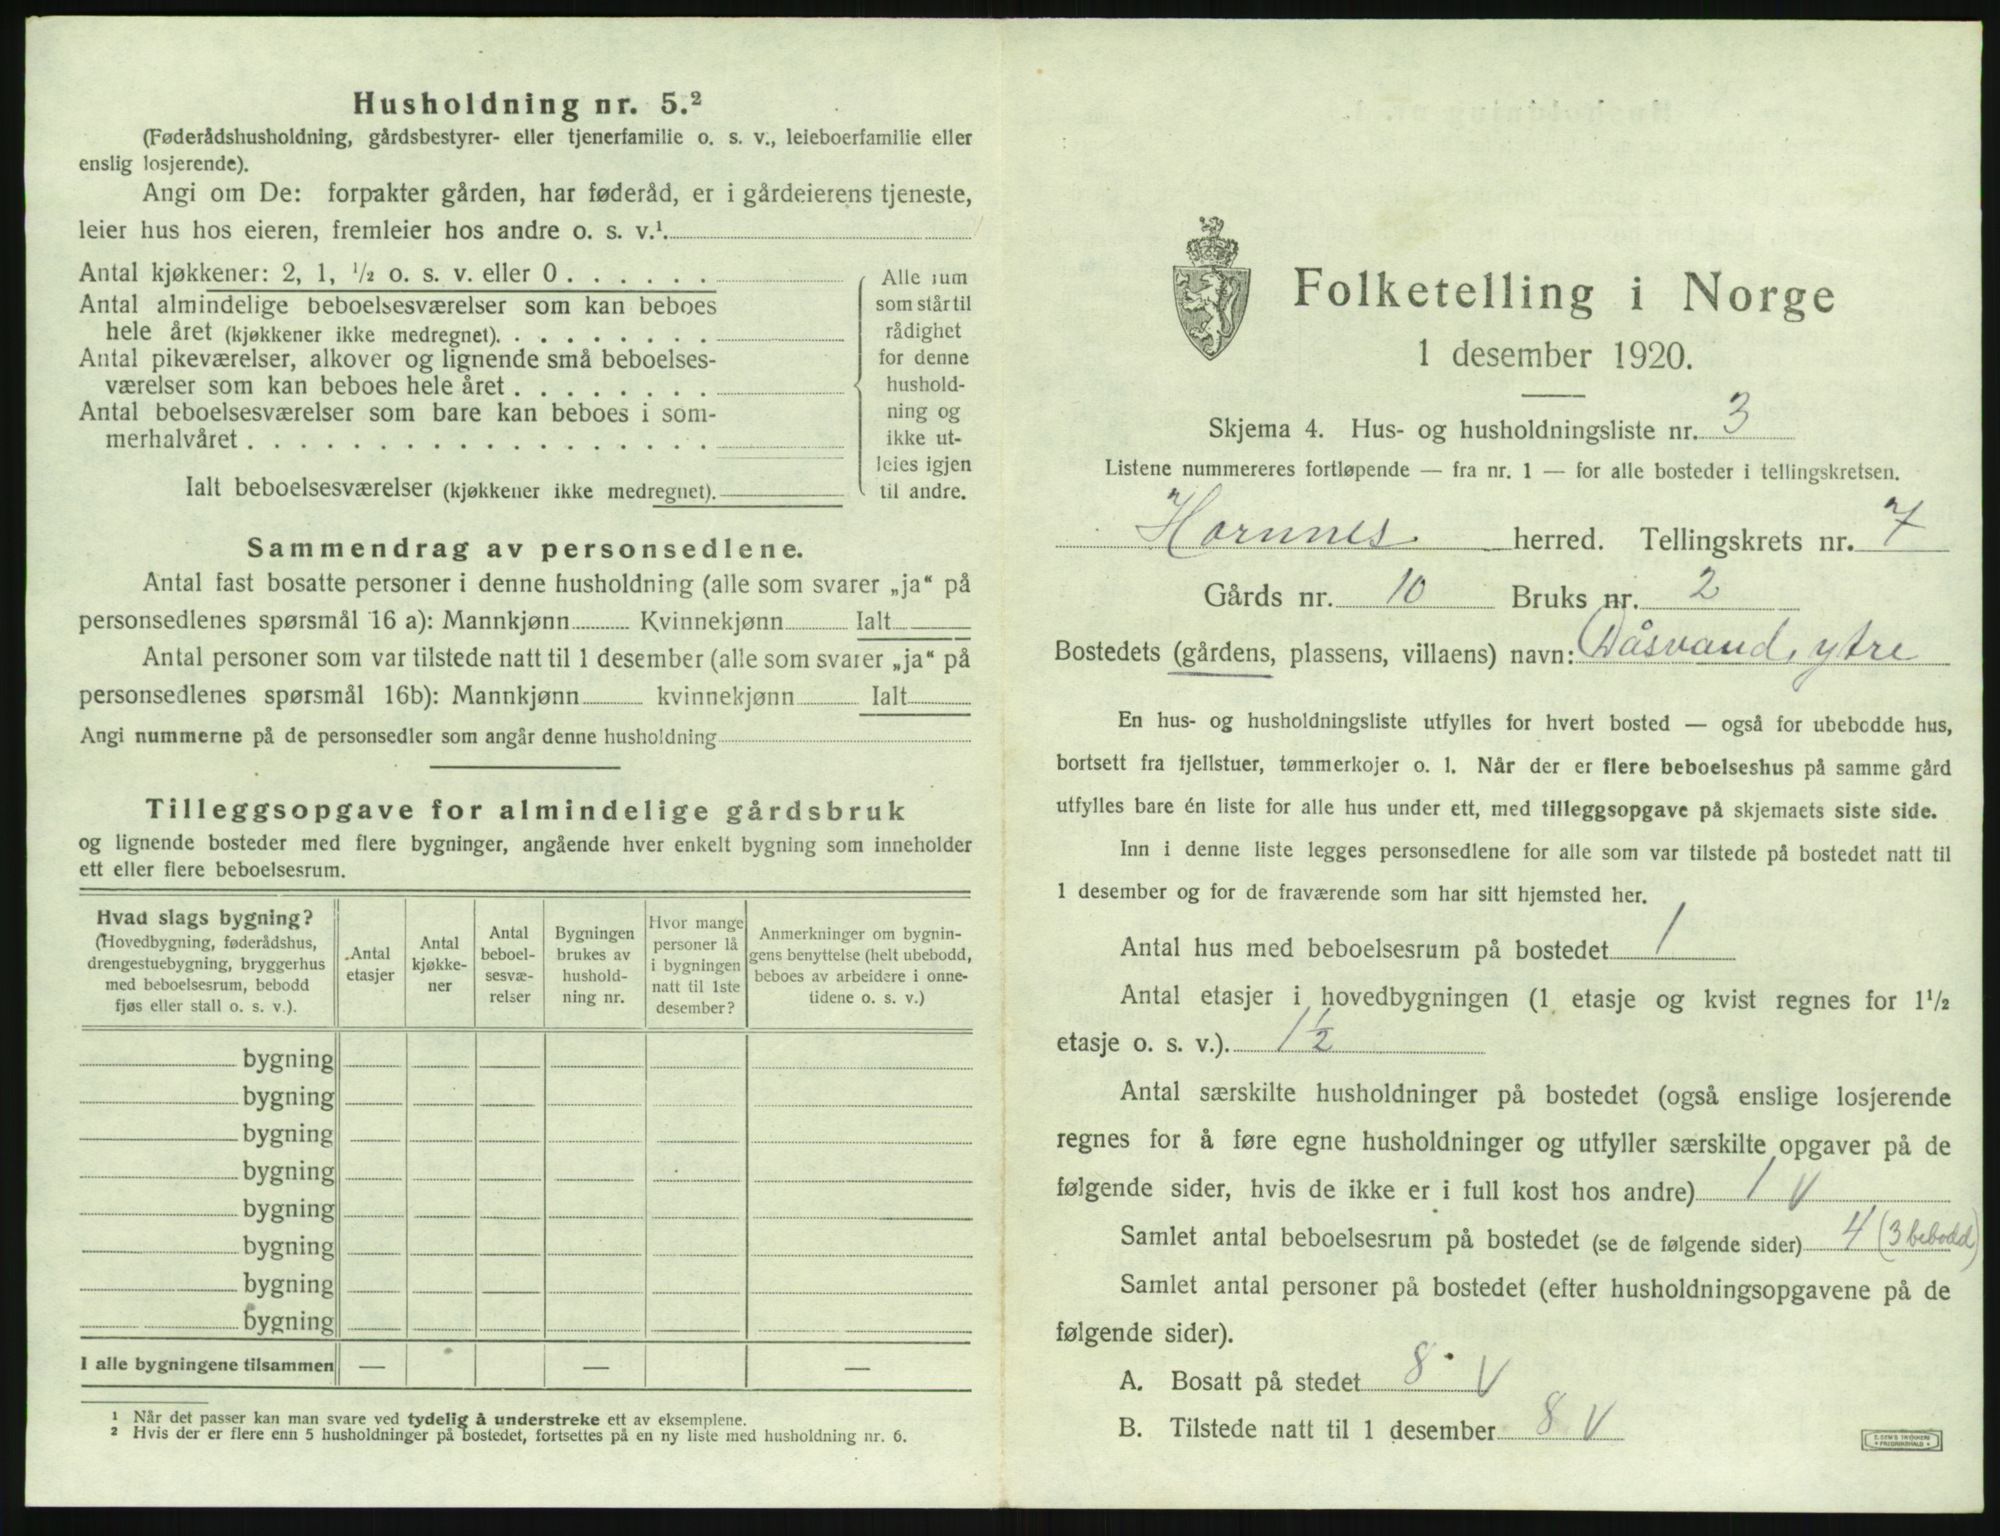 Husholdning nr. 5.²
(Føderådshusholdning, gårdsbestyrer- eller tjenerfamilie o. s. v., leieboerfamilie eller
enslig losjerende).
Angi om De: forpakter gården, har føderåd, er i gårdeierens tjeneste,
leier hus hos eieren, fremleier hos andre o. s. v.¹.
Antal kjøkkener: 2, 1, ½ o. s. v. eller 0 . . . . . .
Antal almindelige beboelsesværelser som kan beboes
hele året (kjøkkener ikke medregnet). . . . . . . . .
Antal pikeværelser, alkover og lignende små beboelses-
værelser som kan beboes hele året . . . . . . . .
Antal beboelsesværelser som bare kan beboes i som-
merhalvåret . . . . . . . . . . . . . . . . . .
Ialt beboelsesværelser (kjøkkener ikke medregnet).
Alle rum
som står til
rådighet
for denne
hushold-
ning og
ikke ut-
leies igjen
til andre.
Sammendrag av personsedlene.
Antal fast bosatte personer i denne husholdning (alle som svarer „ja“ på
personsedlenes spørsmål 16 a): Mannkjønn Kvinnekjønn Ialt
Antal personer som var tilstede natt til 1 desember (alle som svarer „ja“ på
personsedlenes spørsmål 16b): Mannkjønn kvinnekjønn Ialt
Angi nummerne på de personsedler som angår denne husholdning
Tilleggsopgave for almindelige gårdsbruk
og lignende bosteder med flere bygninger, angående hver enkelt bygning som inneholder
ett eller flere beboelsesrum.
Hvad slags bygning?
(Hovedbygning, føderådshus,
drengestuebygning, bryggerhus
med beboelsesrum, bebodd
fjøs eller stall o. s. v.).
Antal
etasjer
Antal
kjøkke-
ner
Antal
beboel-
sesvæ-
relser
Bygningen
brukes av
hushold-
ning nr.
Hvor mange
personer lå
i bygningen
natt til 1ste
desember?
Anmerkninger om bygnin-
gens benyttelse (helt ubebodd,
beboes av arbeidere i onne-
tidene o. s. v.)
bygning
bygning
bygning
bygning
bygning
bygning
bygning
bygning
I alle bygningene tilsammen — — —
¹ Når det passer kan man svare ved tydelig å understreke ett av eksemplene.
² Hvis der er flere enn 5 husholdninger på bostedet, fortsettes på en ny liste med husholdning nr. 6.
Folketelling i Norge
1 desember 1920.
Skjema 4. Hus- og husholdningsliste nr. 3
Listene nummereres fortløpende — fra nr. 1 — for alle bosteder i tellingskretsen.
Hornnes herred. Tellingskrets nr. 7
Gårds nr. 10 Bruks nr. 2
Bostedets (gårdens, plassens, villaens) navn: Dåsvand, ytre
En hus- og husholdningsliste utfylles for hvert bosted — også for ubebodde hus,
bortsett fra fjellstuer, tømmerkojer o. l. Når der er flere beboelseshus på samme gård
utfylles bare én liste for alle hus under ett, med tilleggsopgave på skjemaets siste side.
Inn i denne liste legges personsedlene for alle som var tilstede på bostedet natt til
1 desember og for de fraværende som har sitt hjemsted her.
Antal hus med beboelsesrum på bostedet 1
Antal etasjer i hovedbygningen (1 etasje og kvist regnes for 1½
etasje o. s. v.). 1½
Antal særskilte husholdninger på bostedet (også enslige losjerende
regnes for å føre egne husholdninger og utfyller særskilte opgaver på de
følgende sider, hvis de ikke er i full kost hos andre) 1 V
Samlet antal beboelsesrum på bostedet (se de følgende sider) 4 (3 bebodd)
Samlet antal personer på bostedet (efter husholdningsopgavene på de
følgende sider).
A. Bosatt på stedet 8 V
B. Tilstede natt til 1 desember 8 V